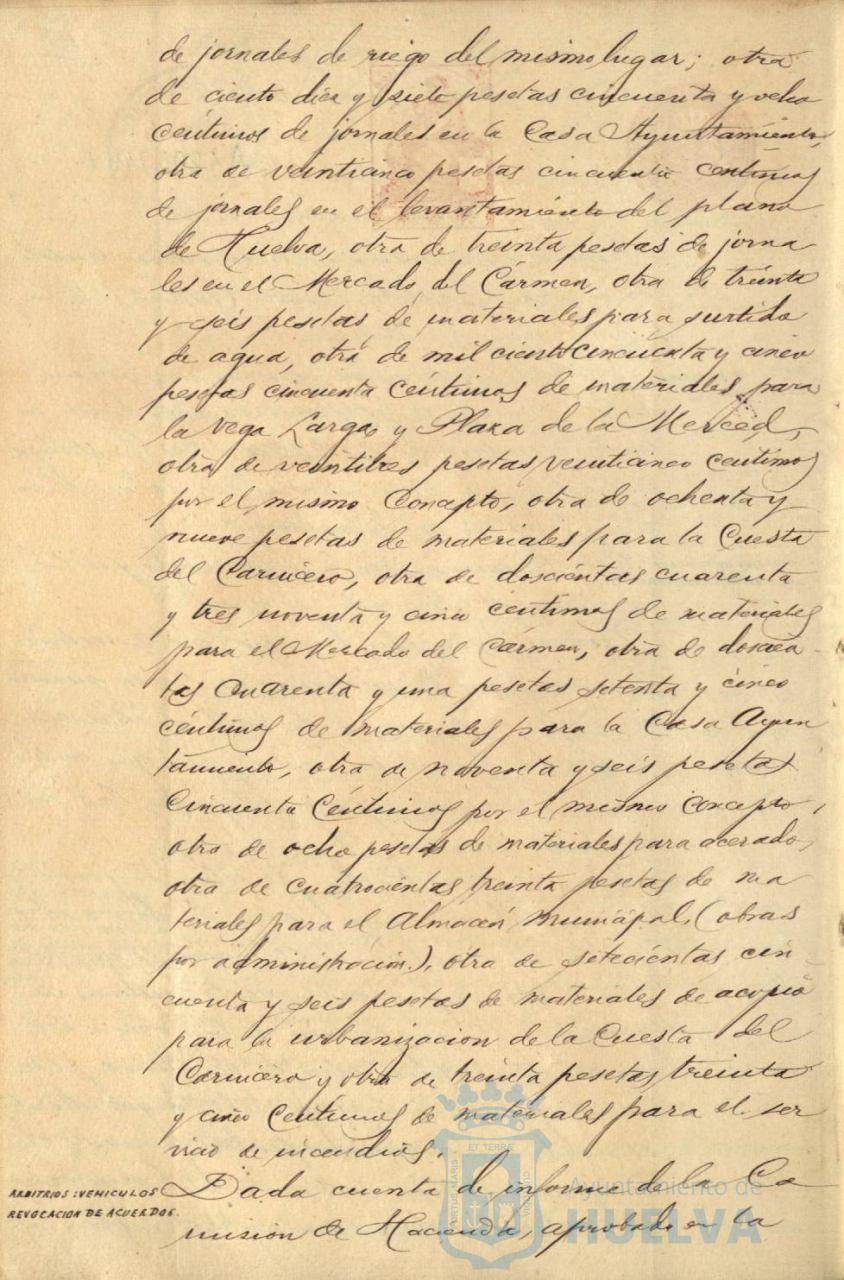 de jornales de riego del mismo lugar; otra
de ciento diez y siete pesetas cincuenta y ocho
céntimos de jornales en la Casa Ayuntamiento,
otra de veinticinco pesetas cincuenta céntimos
de jornales en el levantamiento del plano
de Huelva, otra de treinta pesetas de jorna-
les en el Mercado del Cármen, otra de treinta
y seis pesetas de materiales para surtido
de agua, otra de mil ciento cincuenta y cinco
pesetas cincuenta céntimos de materiales para
la Vega Larga y Plaza de la Merced,
otra de veintitres pesetas veinticinco centimos
por el mismo Concepto, otra de ochenta y
nueve pesetas de materiales para la Cuesta
del Carnicero, otra de doscientas cuarenta
y tres noventa y cinco céntimos de materiales
para el Mercado del Cármen, otra de doscien-
tas cuarenta y una pesetas setenta y cinco
céntimos de materiales para la Casa Ayun
tamiento, otra de noventa y seis pesetas
Cincuenta Céntimos por el mismo Concepto,
otra de ocho pesetas de materiales para acerado,
otra de cuatrocientas treinta pesetas de ma
teriales para el Almacén municipal, (obras
por administración), otra de setecientas cin-
cuenta y seis pesetas de materiales de acopio
para la urbanizacion de la Cuesta del
Carnicero y otra de treinta pesetas treinta
y cinco Centimos de materiales para el ser
vicio de incendios.
ARBITRIOS: VEHICULOS
REVOCACION DE ACUERDOS.
Dada cuenta de informe de la Co
mision de Hacienda, aprobado en la
Ayuntamiento de
HUELVA